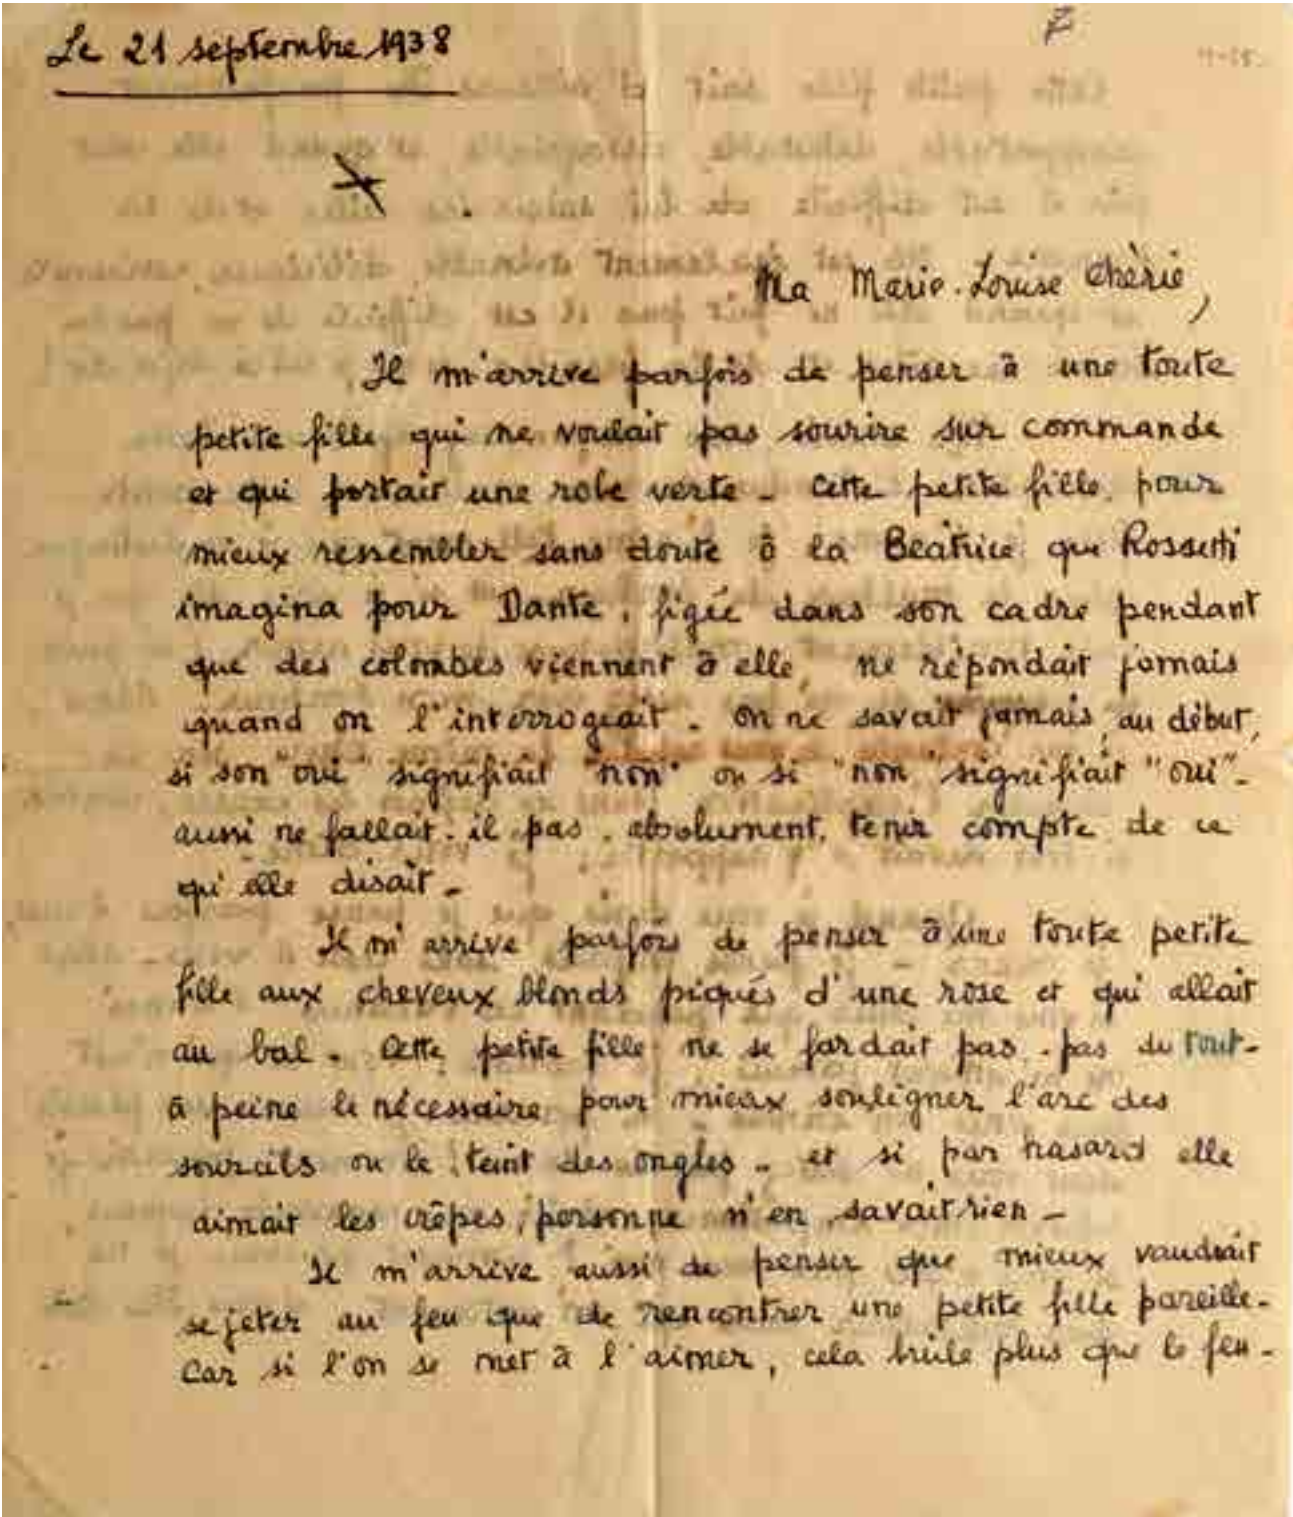 Le 21 septembre 1938
Ma Marie-Louise Chèrie,
Il m'arrive parfois de penser à une toute
petite fille qui ne voulait pas sourire sur commande
et qui portait une robe verte - Cette petite fille, pour
mieux ressembler sans doute à la Beatrice que Rossetti
imagina pour Dante, figée dans son cadre pendant
que des colombes viennent à elle, ne répondait jamais
quand on l'interrogeait - On ne savait jamais, au début,
si son "oui" signifiait "non" ou si "non" signifiait "oui" -
aussi ne fallait-il pas, absolument, tenir compte de ce
qu'elle disait -
Il m'arrive parfois de penser à une toute petite
fille aux cheveux blonds piqués d'une rose et qui allait
au bal - Cette petite fille ne se fardait pas - pas du tout -
à peine le nécessaire pour mieux souligner l'arc des
sourcils ou le teint des ongles - et si par hasard elle
aimait les crêpes, personne n'en savait rien -
Il m'arrive aussi de penser que mieux vaudrait
se jeter au feu que de rencontrer une petite fille pareille -
Car si l'on se met à l'aimer, cela brûle plus que le feu -